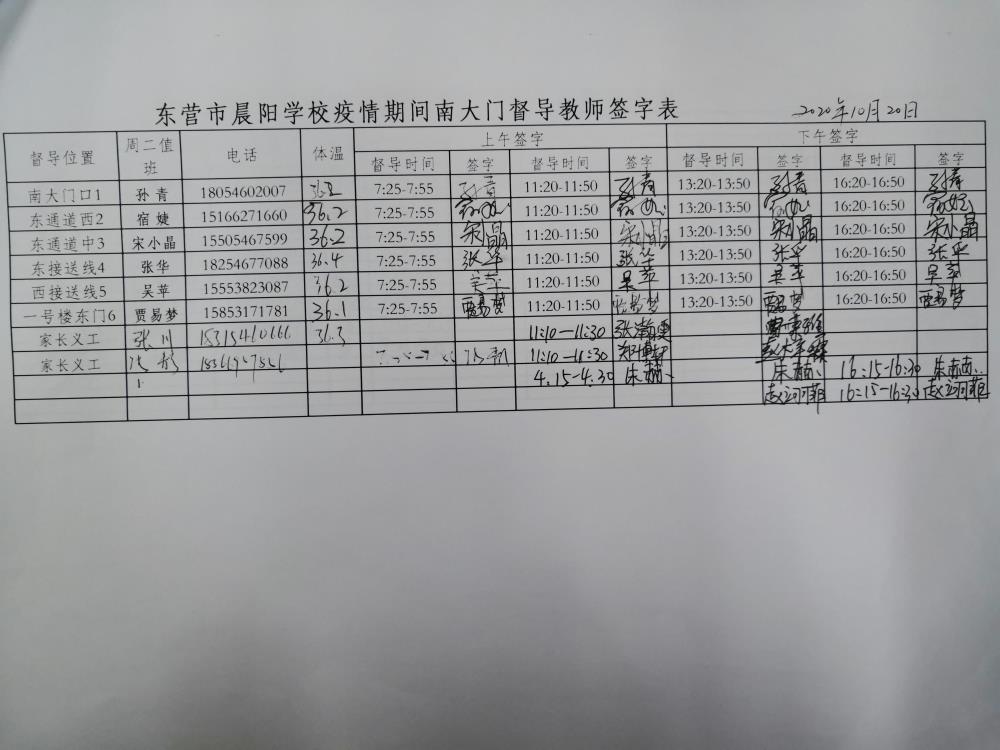 东营市晨阳学校疫情期间南大门督导教师签字表 2020年10月20日
督导位置 周二值班 电话 体温 上午签字 下午签字
督导时间 签字 督导时间 签字 督导时间 签字 督导时间 签字
南大门口1 孙青 18054602007 7:25-7:55 孙青 11:20-11:50 孙青 13:20-13:50 孙青 16:20-16:50 孙青
东通道西2 宿婕 15166271660 36.2 7:25-7:55 11:20-11:50 13:20-13:50 16:20-16:50
东通道中3 宋小晶 15505467599 36.2 7:25-7:55 宋小晶 11:20-11:50 宋小晶 13:20-13:50 宋小晶 16:20-16:50 宋小晶
东接送线4 张华 18254677088 36.4 7:25-7:55 张华 11:20-11:50 张华 13:20-13:50 张华 16:20-16:50 张华
西接送线5 吴苹 15553823087 36.2 7:25-7:55 吴苹 11:20-11:50 吴苹 13:20-13:50 吴苹 16:20-16:50 吴苹
一号楼东门6 贾易梦 15853171781 36.1 7:25-7:55 贾易梦 11:20-11:50 贾易梦 13:20-13:50 16:20-16:50 贾易梦
家长义工 张川 15315460666 36.3 11:10-11:30
家长义工 11:10-11:30
4.15-4.30 朱楠 朱楠 16:15-16:30 朱楠
16:15-16:30